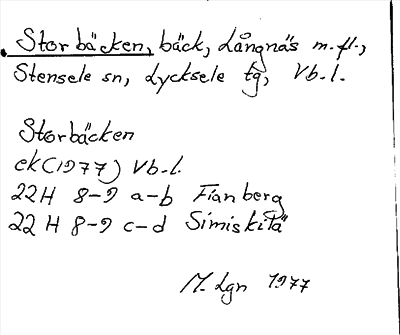 Storbäcken, bäck, Långnäs m.fl.,
Stensele sn, Lycksele tg, Vb.l.
Storbäcken
ek (1977) Vb.l.
22H 8-9 a-b Fianberg
22H 8-9 c-d Simiskilä
M. Lgn 1977